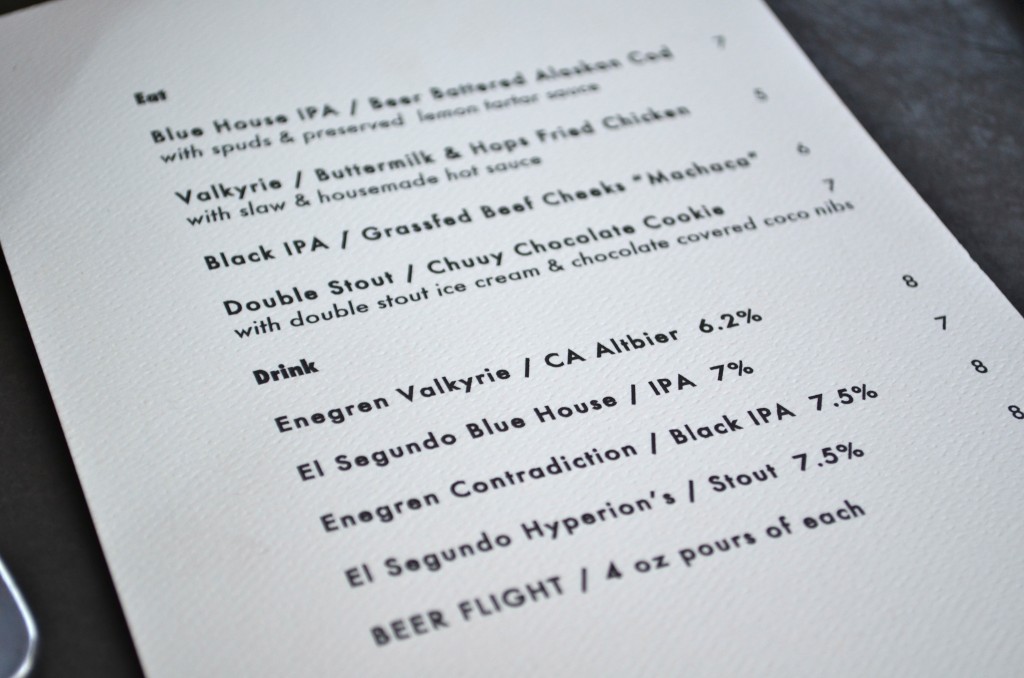 Eat
Blue House IPA / Beer Battered Alaskan Cod 7
with spuds & preserved lemon tartar sauce
Valkyrie / Buttermilk & Hops Fried Chicken 5
with slaw & housemade hot sauce
Black IPA / Grassfed Beef Cheeks "Machaca" 6
Double Stout / Chuuy Chocolate Cookie 7
with double stout ice cream & chocolate covered coco nibs
Drink
Enegren Valkyrie / CA Altbier 6.2% 8
El Segundo Blue House / IPA 7% 7
Enegren Contradiction / Black IPA 7.5% 8
El Segundo Hyperion's / Stout 7.5% 8
BEER FLIGHT / 4 oz pours of each